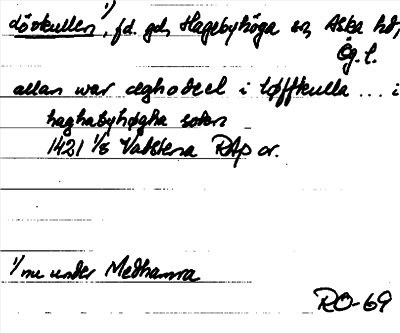 Lövkullen 1), fd. gd, Hagebyhöga sn, Aska hd,
Ög. l.
allan war æghodeel i Løffkulla ... i
haghabyhøgha sokn
1421 1/8 Vadstena RAp or.
1/ nu under Medhamra
RO-69